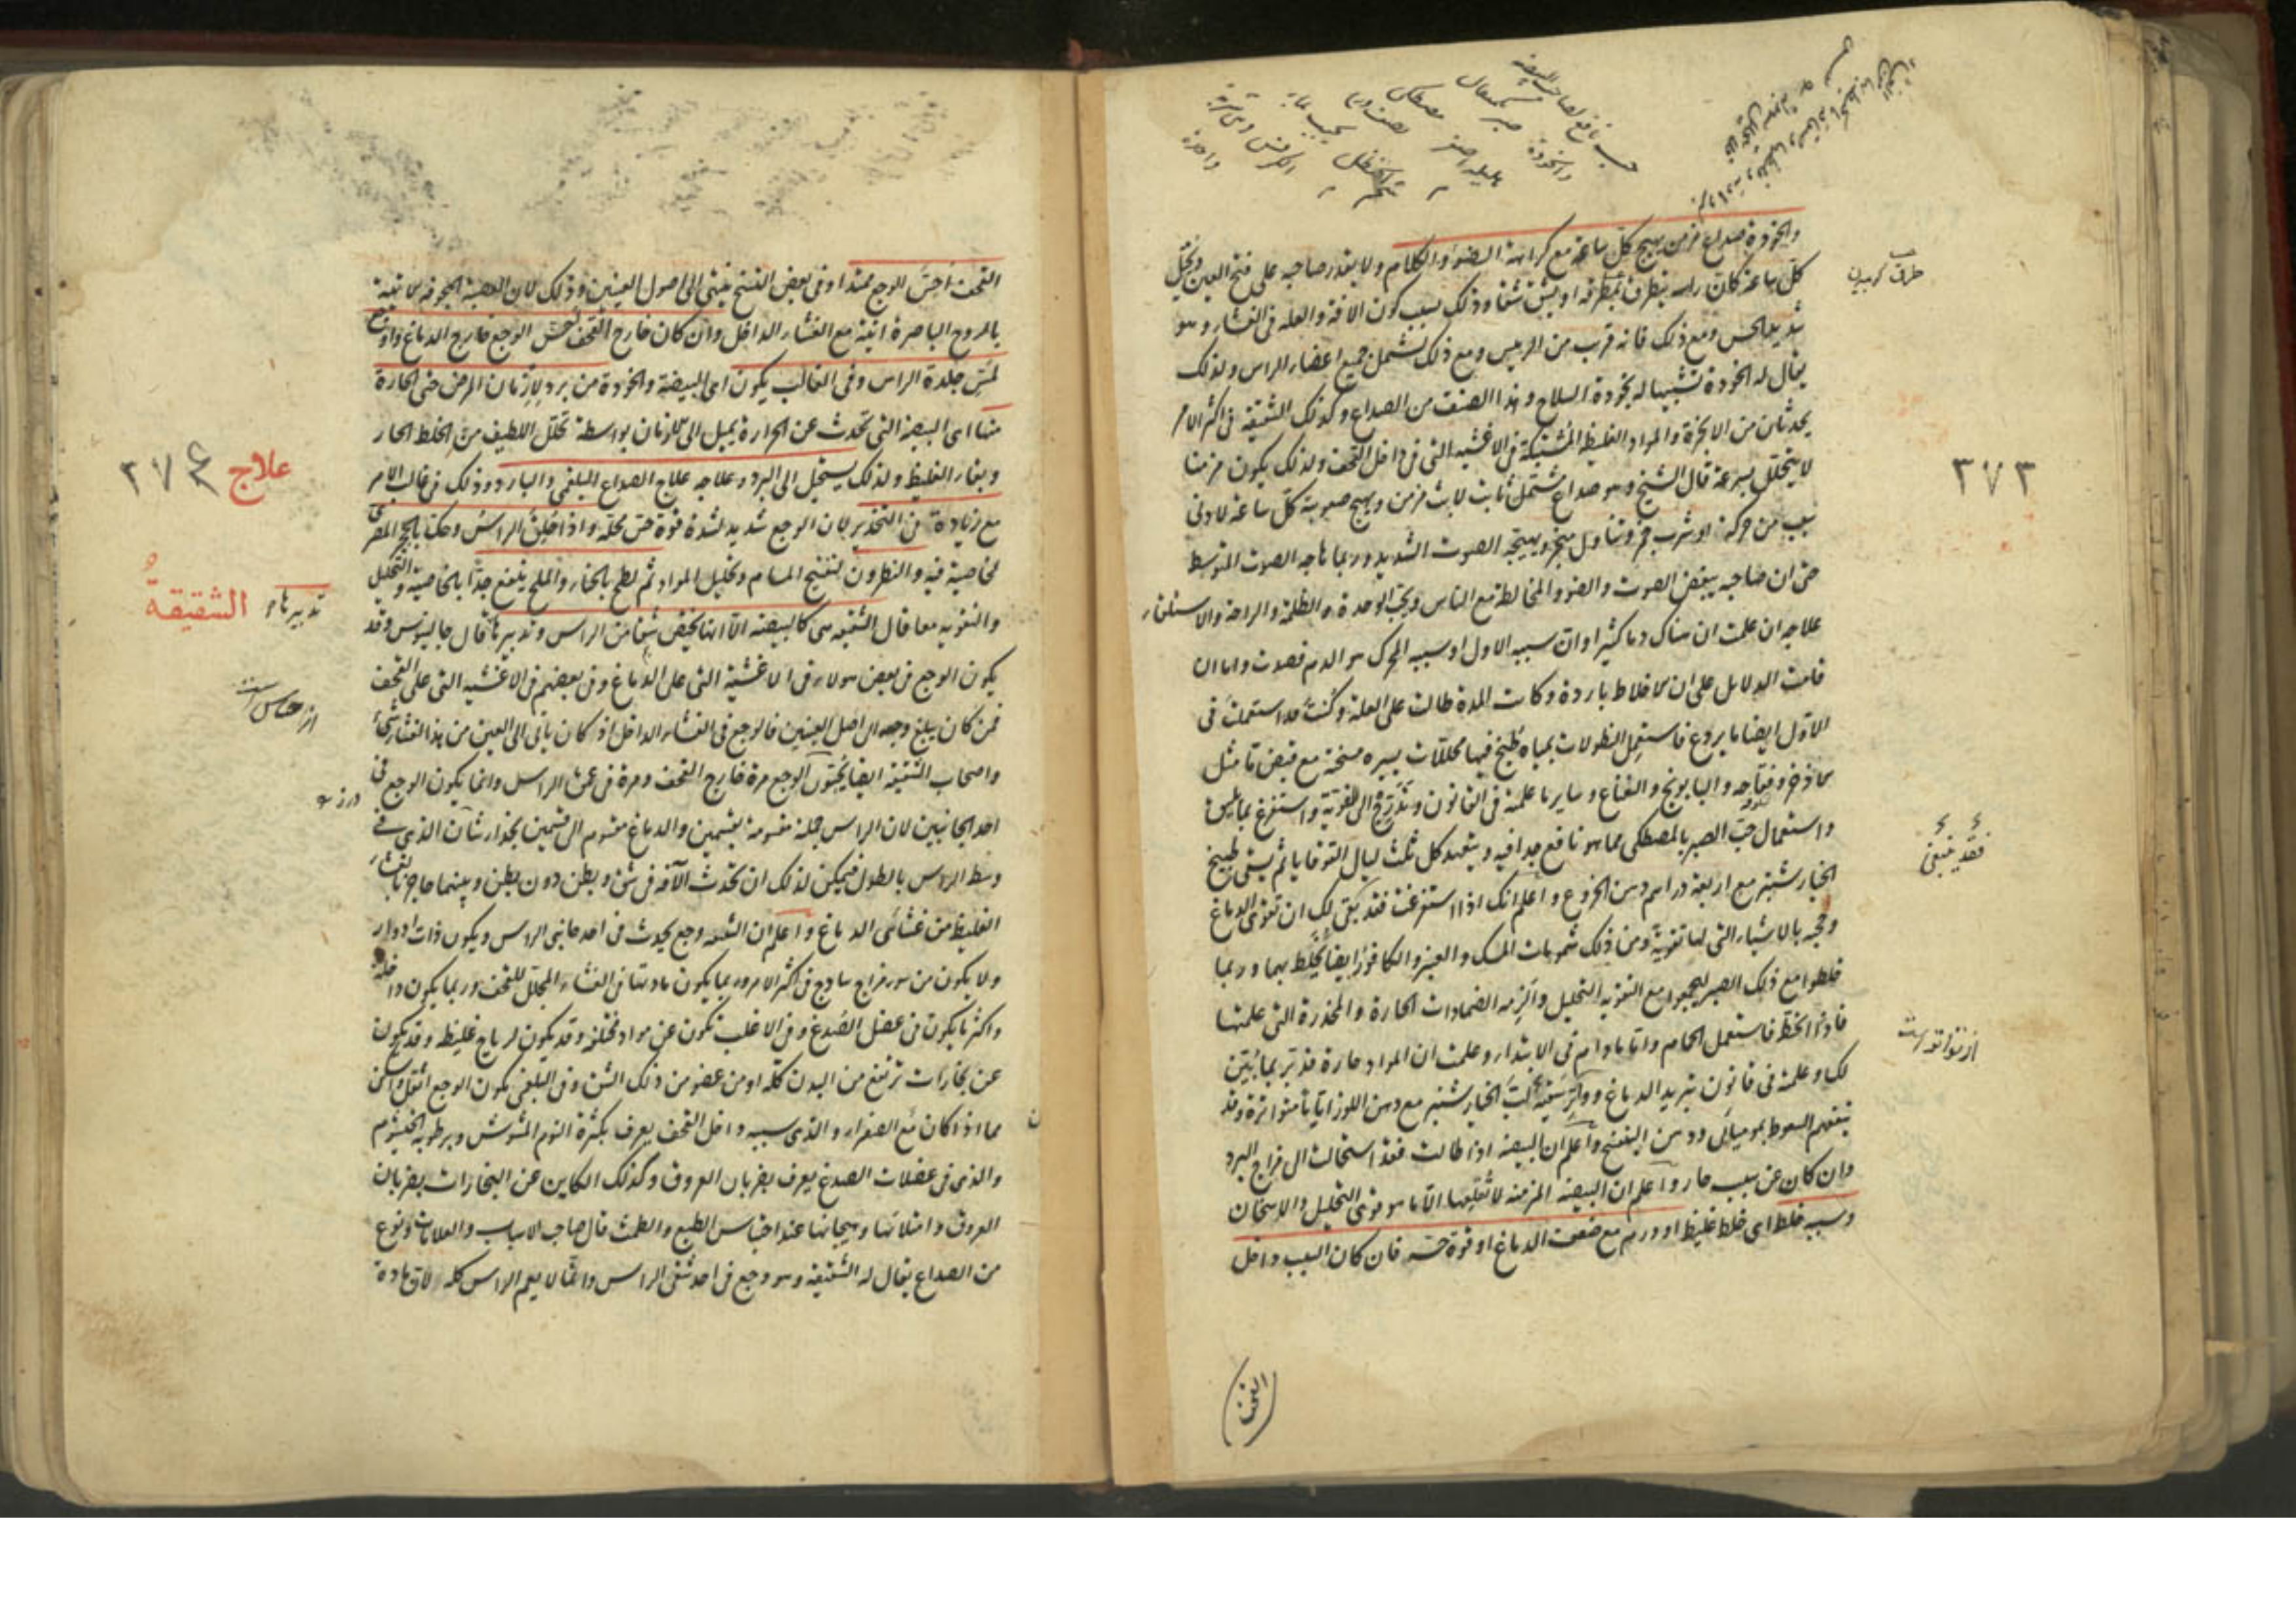 حب نافع لصاحب البيضة
والخوذة صبر مثقال
مصطكى
هليله اصفر
نصف درهم
شحم الحنظل
يحبب بماء
الكرفس
واحدة
والخوذة صداع مزمن يهيج كل ساعة مع كراهة الضوء والكلام ولا يقدر صاحبه على فتح العين ويخيل
كل ساعة كان راسه يطرق بمطرقة او يشق شقا وذلك بسبب كون الافة والعلة فى الغشاء وهو
شديد الحس ومع ذلك فانه قرب من الرييس ومع ذلك يشمل جميع اعضاء الراس ولذلك
يقال له الخوذة تشبيها له بخوذة السلاح وهذا الصنف من الصداع وكذلك الشقيقة فى اكثر الامر
يحدثان من الابخرة والمواد الغليظة المشتبكة فى الاغشية التى فى داخل القحف ولذلك يكون مزمنا
لا يتحلل بسرعة قال الشيخ وهو صداع مشتمل ثابت لابث مزمن ويهيج صعوبته كل ساعة لادنى
سبب من حركة او شرب خمر وتناول مبخر ويهيجه الصوت الشديد وربما هاجه الصوت المتوسط
حتى ان صاحبه يبغض الصوت والضوء والمخالطة مع الناس ويحب الوحدة والظلمة والراحة والاستلقاء
علاجه ان علمت ان هناك دما كثيرا وان سببه الاول او سببه المحرك هو الدم فصدت واما ان
قامت الدلايل على ان الاخلاط باردة وكانت المدة طالت على العلة وكنت قد استعملت فى
الاول ايضا ما يردع فاستعمل النطولات بمياه طبخ فيها محللات يسيره مسخنة مع قبض ما مثل
الاذخر وفقاحه والبابونج والنعناع وساير ما علمته فى القانون وتدرج الى القوية واستفرغ بما يليق
واستعمال حب الصبر بالمصطكى مما هو نافع جدا فيه ويتعهد كل ثلث ليال القوقايا ثم يسقى طبيخ
الخيارشنبر مع اربعة دراهم دهن الخروع واعلم انك اذا استفرغت فقد بقى لك ان تقوى الدماغ
وحجبه بالاشياء التى لها تقوية ومن ذلك شمومات المسك والعنبر والكافور ايضا يخلط بهما وربما
خلطوا مع ذلك الصبر ليجمعوا مع التقوية التحليل والزمه الضمادات الحارة والمخدرة التى علمتها
فاذا انحط فاستعمل الحمام واما ما دام فى الابتداء وعلمت ان المواد حارة فدبر بما بينت
لك وعلمته فى قانون تبريد الدماغ وواتر سقيه لب الخيارشنبر مع دهن اللوز اياما متواترة وقد
ينفعهم السعوط بموميائى ودهن البنفسج واعلم ان البيضة اذا طالت فقد استحالت الى مزاج البرد
وان كان عن سبب حار واعلم ان البيضة المزمنة لا تقلعها الا ما هو قوى التحليل والاسخان
وسببه خلط اى خلط غليظ او ورم مع ضعف الدماغ او قوة حسه فان كان السبب داخل
القحف
٢٧٣
فقد ينبغى
القحف احس الوجع ممتدا وفى بعض النسخ ينتهى الى اصول العينين وذلك لان العصبة المجوفة الاتية
بالروح الباصرة اتية مع الغشاء الداخل وان كان خارج القحف احس الوجع خارج الدماغ واوجع
لمس جلدة الراس وفى الغالب يكون اى البيضة والخوذة من برد لازمان المرض حتى الحارة
منها اى البيضة التى تحدث عن الحرارة يميل الى الازمان بواسطة تحلل اللطيف من الخلط الحار
وبقاء الغليظ ولذلك يستحيل الى البرد وعلاجه علاج الصداع البلغمى والبارد وذلك فى غالب الامر
مع زيادة فى التخدير لان الوجع شديد لشدة قوة حس محله واذا حلق الراس وحك بالحجر المصرى
لخاصية فيه والنطرون لتفتيح المسام وتحليل المواد ثم لطخ بالحناء والملح ينفع جدا بالخاصية والتحليل
والتقوية معا قال الشقيقة هى كالبيضة الا انها تختص شقا من الراس وتدبيرها قال جالينوس وقد
يكون الوجع فى بعض هولاء فى الاغشية التى على الدماغ وفى بعضهم فى الاغشية التى على القحف
فمن كان يبلغ وجعه الى اصل العينين فالوجع فى الغشاء الداخل اذ كان ياتى الى العين من هذا الغشاء شئ
واصحاب الشقيقة ايضا يحسون الوجع مرة خارج القحف ومرة فى عمق الراس وانما يكون الوجع فى
احد الجانبين لان الراس جملة مقسومة بقسمين والدماغ مقسوم الى قسمين بحذاء الشان الذى فى
وسط الراس بالطول فيمكن لذلك ان تحدث الآفة فى شق وبطن دون بطن وبينهما حاجز
الغليظ من غشائى الدماغ واعلم ان الشقيقة وجع يحدث فى احد جانبى الراس ويكون ذات ادوار
ولا يكون من سوء مزاج ساذج فى اكثر الامر وربما يكون مادتها فى الغشاء المجلل للقحف وربما يكون داخله
واكثر ما يكون فى عضل الصدغ وفى الاغلب تكون عن مواد مختلفة وقد يكون لرياح غليظة وقد يكون
عن بخارات ترتفع من البدن كله او من عضو من ذلك الشق وفى البلغمى يكون الوجع اثقل واسكن
مما اذا كان مع الصفراء والذى سببه داخل القحف يعرف بكثرة النوم المشوش وبرطوبة الخيشوم
والذى فى عضلات الصدغ يعرف بضربان العروق وكذلك الكاين عن البخارات بضربان
العروق وامتلائها وهيجانها عند احتباس الطبع والطمث قال صاحب الاسباب والعلامات ونوع
من الصداع يقال له الشقيقة وهو وجع فى احد شقى الراس وانما لا يعم الراس كله لان مادة
علاج ٢٧٤
تدبيرها و الشقيقة